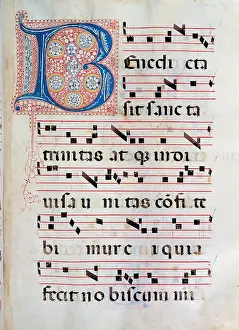 Benedicta
sit sancta
trinitas atq indi
uisa unitas cōfite
bimur ei quia
fecit nobiscum mi